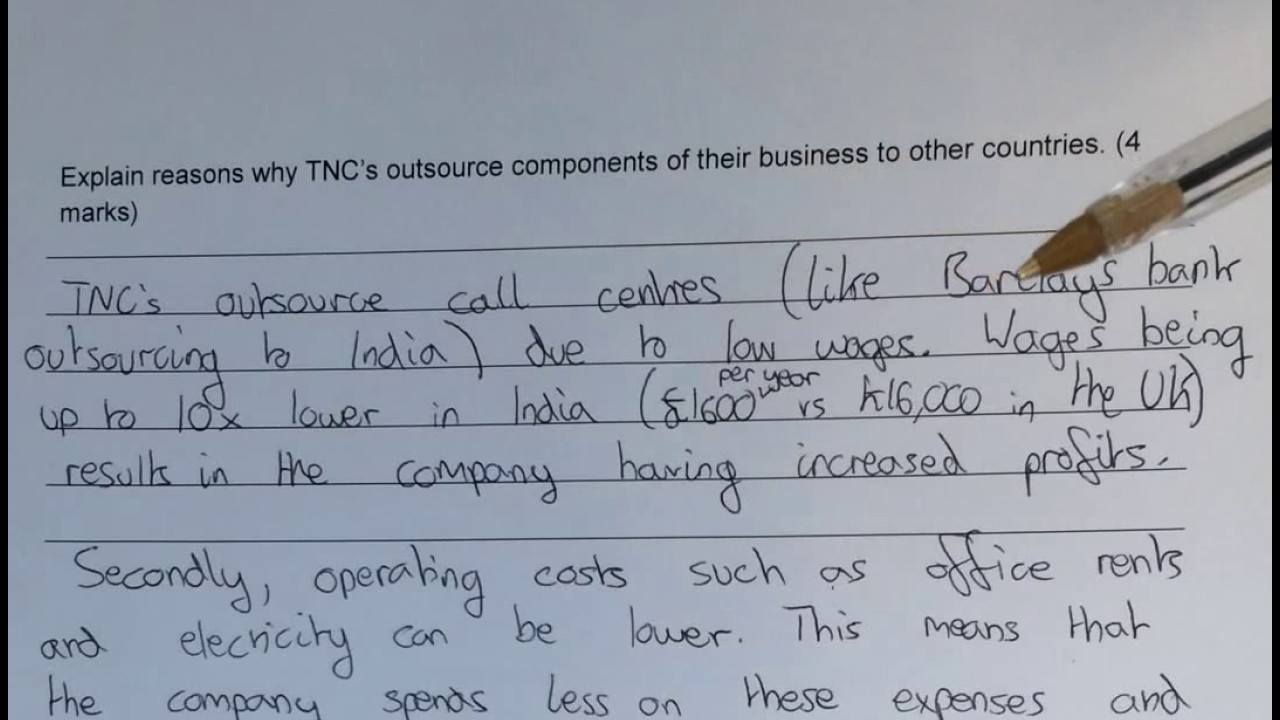 Explain reasons why TNC's outsource components of their business to other countries. (4
marks)
TNC's outsource call centres (like Barclays bank
outsourcing to India) due to low wages. Wages being
per year
up to 10x lower in India (£1600 vs £16,000 in the UK)
results in the company having increased profits.
Secondly, operating costs such as office rents
and elecricity can be lower. This means that
the company spends less on these expenses and